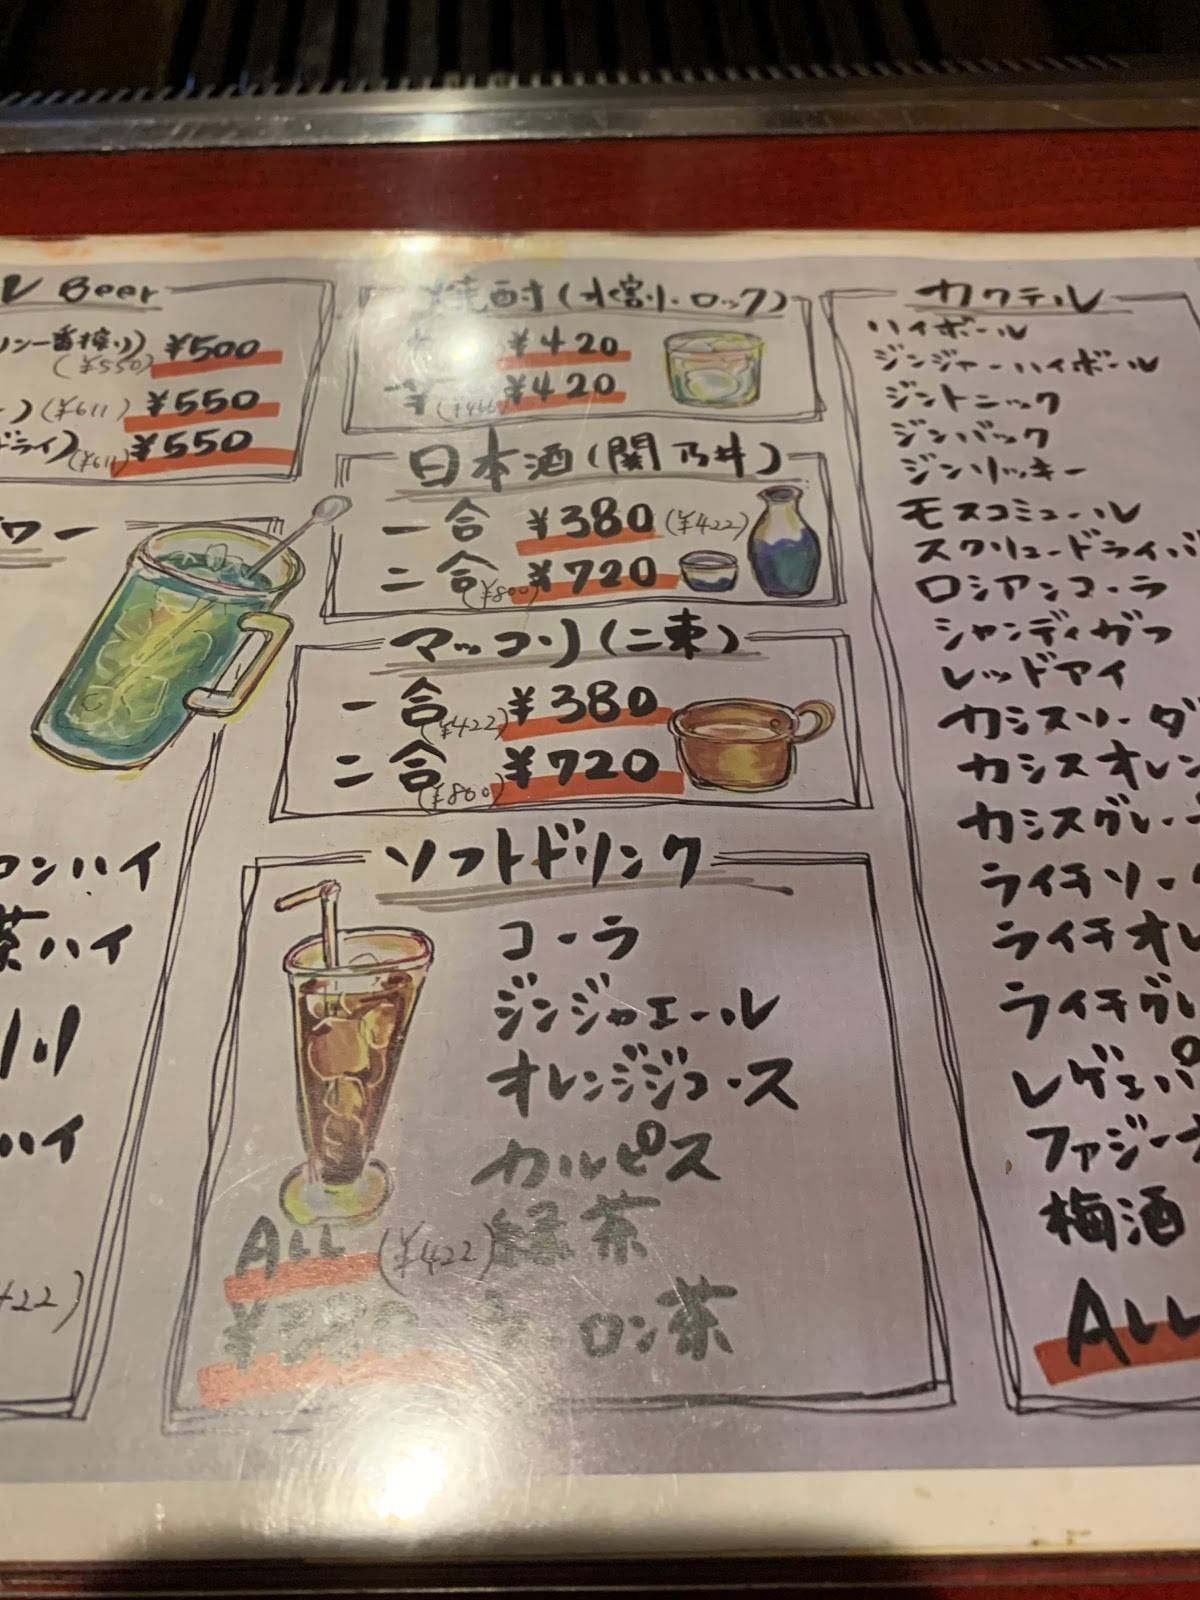 Beer
一番搾り) ¥500
(¥550)
) (¥611) ¥550
ドライ) (¥611) ¥550
ワー
ハイ
茶ハイ
ハイ
422)
焼酎 (水割り・ロック)
¥420
¥420
日本酒 (関乃井)
一合 ¥380 (¥422)
二合 (¥800) ¥720
マッコリ (二東)
一合 (¥422) ¥380
二合 (¥800) ¥720
ソフトドリンク
コーラ
ジンジャエール
オレンジジュース
カルピス
緑茶
ウーロン茶
ALL (¥422)
カクテル
ハイボール
ジンジャーハイボール
ジントニック
ジンバック
ジンリッキー
モスコミュール
スクリュードライバ
ロシアンコーラ
シャンディガフ
レッドアイ
カシスソーダ
カシスオレン
カシスグレー
ライチソー
ライチオレ
ライチグレ
レゲェパ
ファジー
梅酒
ALL